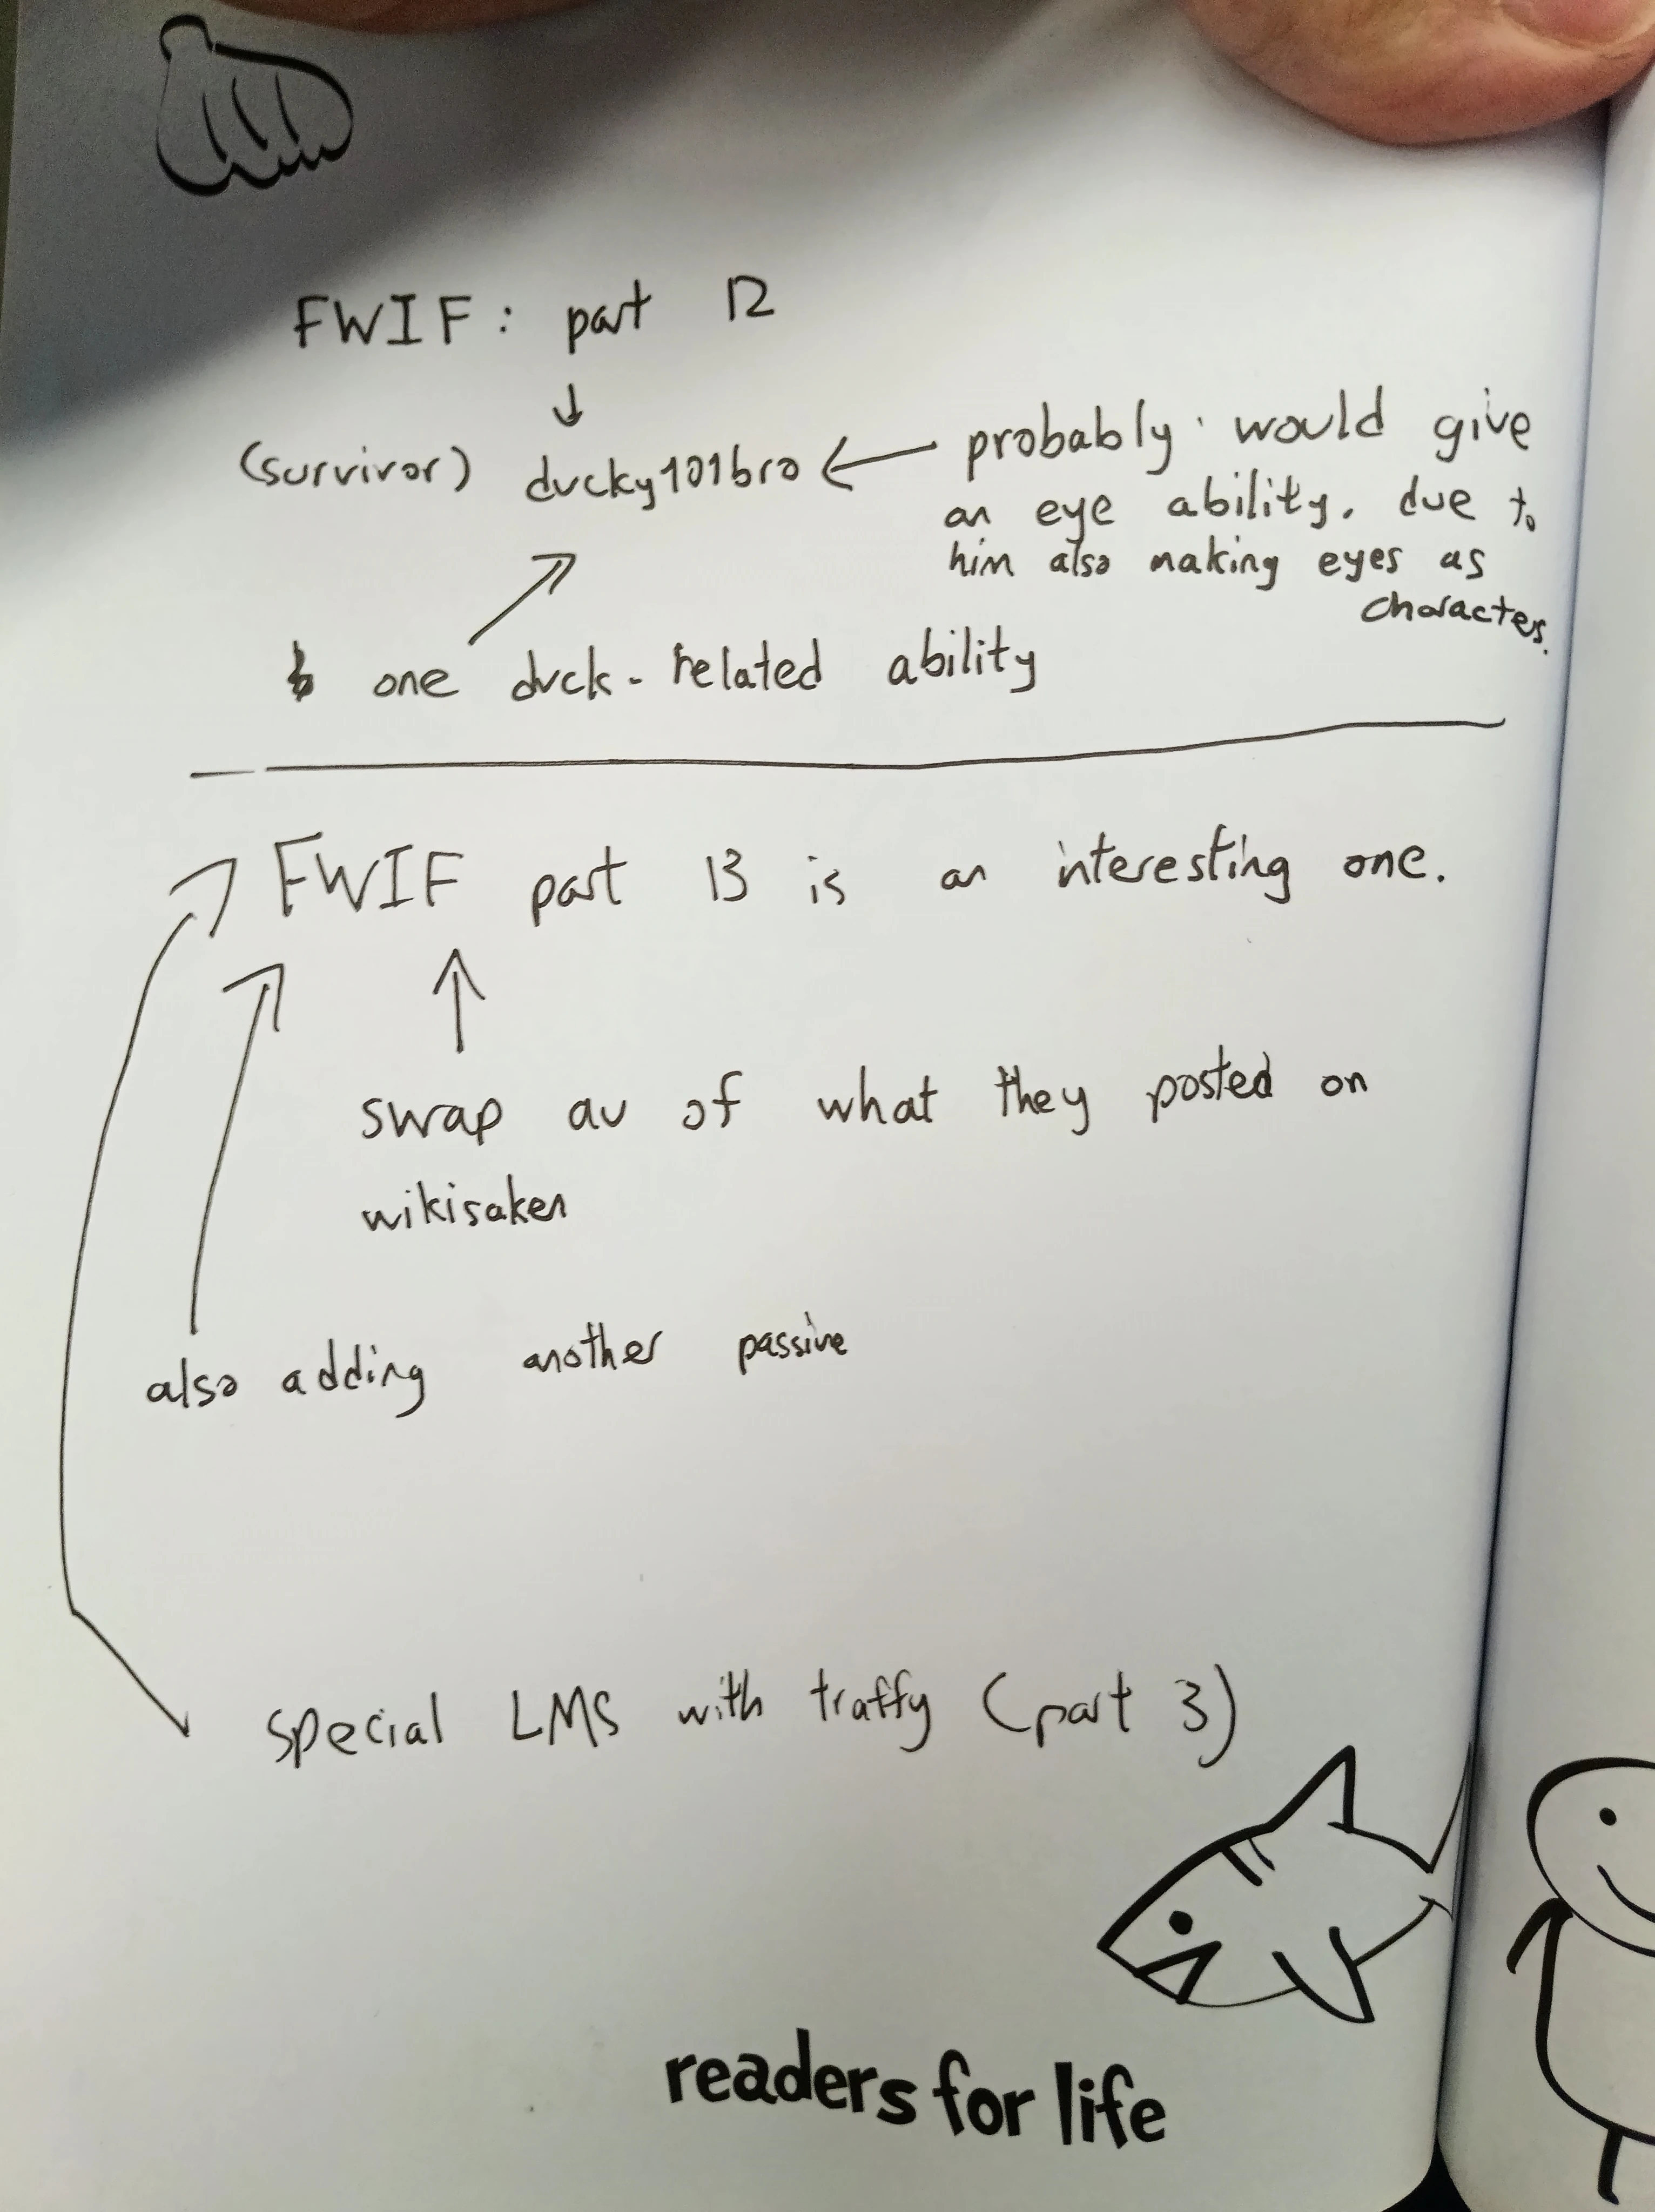 FWIF: part 12
(survivor) ducky101bro
probably would give
an eye ability. due to
him also making eyes as
characters.
one duck-related ability
FWIF part 13 is an interesting one.
swap au of what they posted on
wikisaken
also adding another passive
special LMS with traffy (part 3)
readers for life